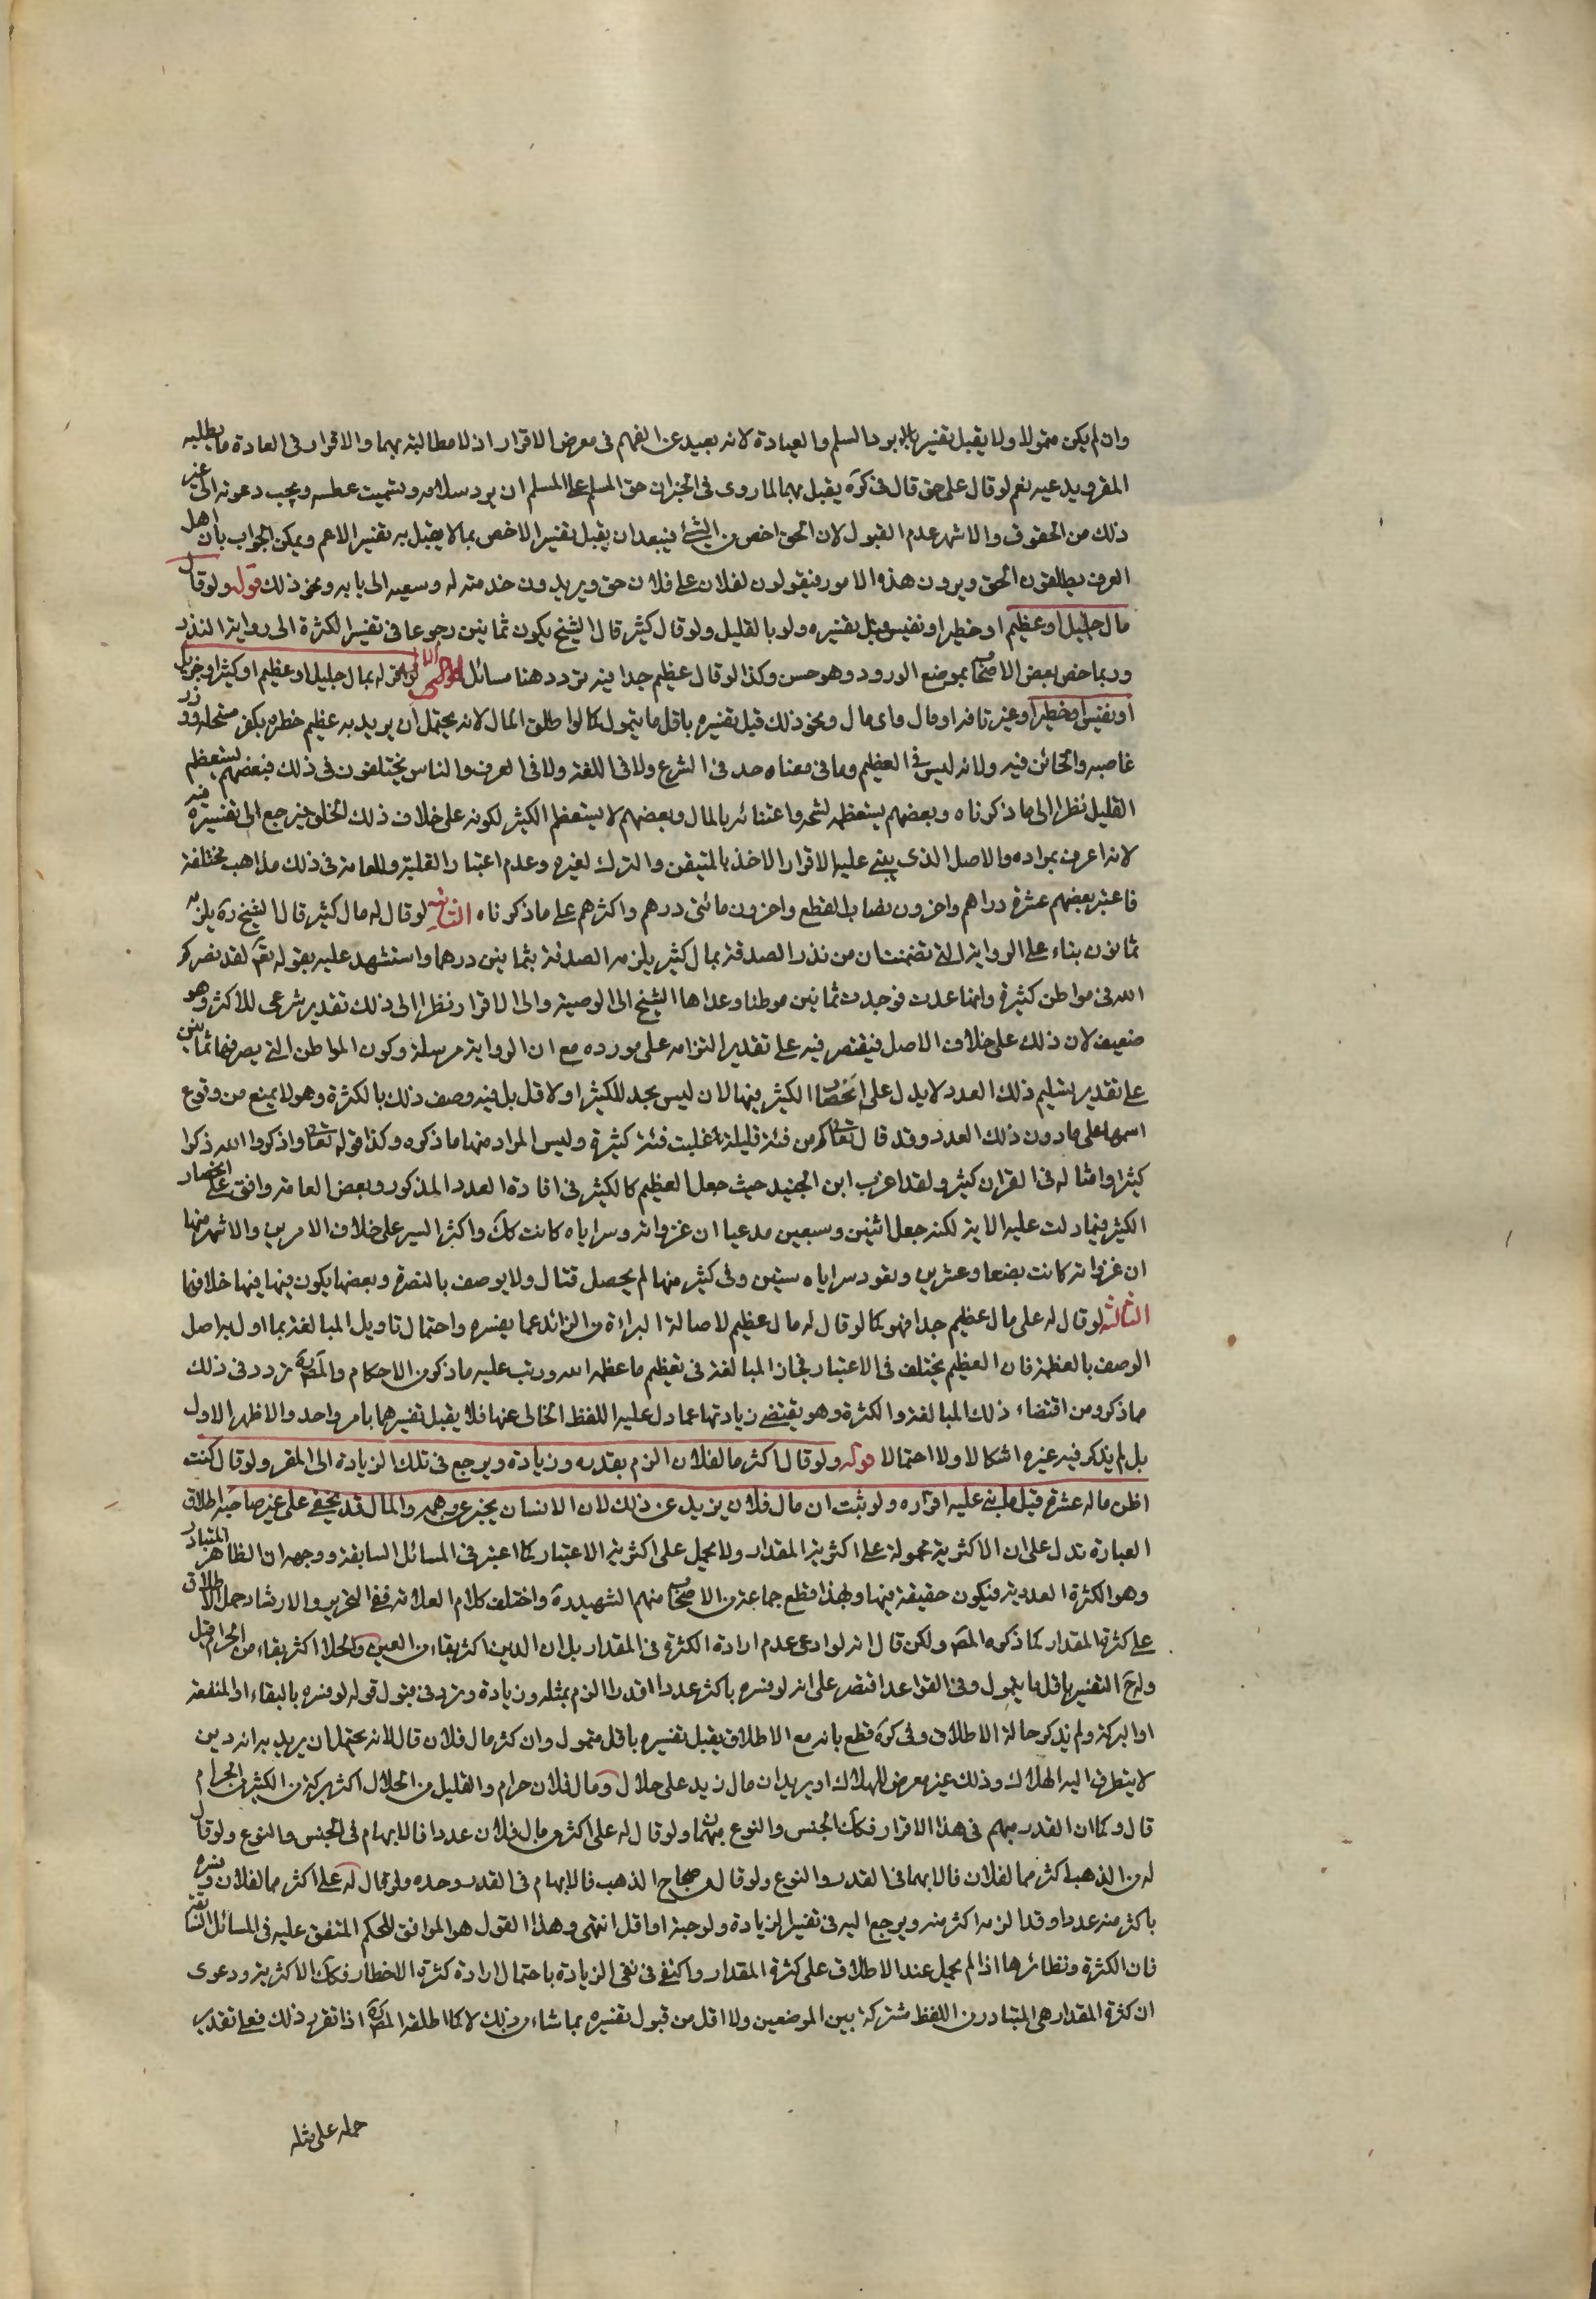 وان لم يكن متمولا ولا يقبل تفسيره برد السلم والعيادة لانه بعيد عن الفهم في معرض الاقرار اذ لا مطالبة بهما والاقرار في العادة ما يطلبه
المقر ويدعيه نعم لو قال على حق قال في كره يقبل بهما لما روى في الخبر ان حق المسلم على المسلم ان يرد سلامه وتسميت عطسه ويجب دعوته الى غير
ذلك من الحقوق والاشهر عدم القبول لان الحق اخص من الشئ فيبعد ان يقبل تفسير الاخص بما لا يقبل به تفسير الاعم ويمكن الجواب بان اهل
العرف يطلقون الحق ويرون هذه الامور فيقولون لفلان على فلان حق ويريدون خدمته له وسعيه الى بابه ونحو ذلك قوله ولو قال
مال جليل او عظيم او خطير او نفيس قبل تفسيره ولو بالقليل ولو قال كثير قال الشيخ يكون ثمانين رجوعا في تفسير الكثرة الى رواية النذر
وربما خص بعض الاصحاب بموضع الورود وهو حسن وكذا لو قال عظيم جدا فيه تردد هنا مسائل الاولى لو اقر له بمال جليل او عظيم او كثير او جزيل
او نفيس او خطير او غير تافه او مال واى مال ونحو ذلك قبل تفسيره باقل ما يتمول كما لو اطلق المال لانه يحتمل ان يريد به عظيم خطره بكفر مستحله ووزر
غاصبه والخائن فيه ولانه ليس في العظيم وما في معناه حد في الشرع ولا في اللغة ولا في العرف والناس يختلفون في ذلك فبعضهم يستعظم
القليل نظرا الى ما ذكرناه وبعضهم يستعظمه لشحه واعتنائه بالمال وبعضهم لا يستعظم الكثير لكونه على خلاف ذلك الخلق فيرجع الى تفسيره فيه
لانه اعرف بمراده والاصل الذى يبنى عليه الاقرار الاخذ بالمتيقن والترك لغيره وعدم اعتبار الغلبة وللعامة في ذلك مذاهب مختلفة
فاعتبر بعضهم عشرة دراهم واخرون نصاب القطع واخرون مائتى درهم واكثرهم على ما ذكرناه الثانية لو قال له مال كثير قال الشيخ ره يلزمه
ثمانون بناء على الرواية التى تضمنت ان من نذر الصدقة بمال كثير يلزمه الصدقة بثمانين درهما واستشهد عليه بقوله تعم لقد نصركم
الله في مواطن كثيرة وانها عدت فوجدت ثمانين موطنا وعداها الشيخ الى الوصية والى الاقرار نظرا الى ذلك تقدير شرعى للاكثر وهو
ضعيف لان ذلك على خلاف الاصل فيقتصر فيه على تقدير التزامه على مورده مع ان الرواية مرسلة وكون المواطن التى نصر فيها ثمانين
على تقدير تسليم ذلك العدد لا يدل على انحصار الكثير فيها لان ليس بحد للكثير او لاقل بل فيه وصف ذلك بالكثرة وهو لا يمنع من وقوع
اسمها على ما دون ذلك العدد وقد قال تعالى كم من فئة قليلة غلبت فئة كثيرة وليس المراد منها ما ذكره وكذا قوله تعالى واذكروا الله ذكرا
كثيرا وامثاله في القران كثير ولقد اغرب ابن الجنيد حيث جعل العظيم كالكثير في افادة العدد المذكور وبعض العامة وافق على انحصار
الكثير فيما دلت عليه الاية لكنه جعل اثنين وسبعين مدعيا ان غزواته وسراياه كانت كك واكثر السير على خلاف الامرين والاشهر منها
ان غزواته كانت بضعا وعشرين وبعوث سراياه ستين وفي كثير منها لم يحصل قتال ولا يوصف بالنصرة وبعضها يكون فيها خلافها
الثالثة لو قال له على مال عظيم جدا فهو كما لو قال له مال عظيم لاصالة البراءة من الزائد عما يفسره واحتمال تاويل المبالغة بما اول به اصل
الوصف بالعظمة فان العظيم يختلف في الاعتبار فجاز المبالغة في تعظيم ما عظمه الله ورتب عليه ما ذكر من الاحكام والمصره تردد في ذلك
مما ذكر ومن اقتضاء ذلك المبالغة والكثرة وهو يقتضى زيادتها عما دل عليه اللفظ الخالى عنها فلا يقبل تفسيرهما بامر واحد والاظهر الاول
بل لم يذكر فيه غيره اشكالا ولا احتمالا قوله ولو قال اكثر مما لفلان الزم بقدره وزيادة ويرجع في تلك الزيادة الى المقر ولو قال كنت
اظن ماله عشرة قبل ما بنى عليه اقراره ولو ثبت ان مال فلان يزيد عن ذلك لان الانسان يخبر عن وهمه والمال قد يخفى على غير صاحبه اطلاق
العبارة تدل على ان الاكثرية محمولة على اكثرية المقدار ولا يحمل على اكثرية الاعتبار كما اعتبر في المسائل السابقة ووجهه ان الظاهر المتبادر
وهو الكثرة العددية فيكون حقيقة فيها ولهذا قطع جماعة من الاصحاب منهم الشهيد ره واختلف كلام العلامة ففى التحرير والارشاد حمل الاطلاق
على كثرة المقدار كما ذكره المصره ولكن قال انه لو ادعى عدم ارادة الكثرة في المقدار بل ان الدين اكثر بقاء من العين والحلال اكثر بقاء من الحرام قبل
وله ح التفسير باقل ما يتمول وفى القواعد اقتصر على انه لو فسره باكثر عددا او قدرا الزم بمثله وزيادة وتردد في قبول قوله لو فسره بالبقاء او المنفعة
او البركة ولم يذكر حالة الاطلاق وفى كره قطع بانه مع الاطلاق يقبل تفسيره باقل متمول وان كثر مال فلان قال لانه يحتمل ان يريد به انه دين
لا يتطرق اليه الهلاك وذلك عين معرض للهلاك او يريد ان مال زيد على حلال ومال فلان حرام والقليل من الحلال اكثر بركة من الكثير من الحرام
قال وكما ان القدر مبهم في هذا الاقرار فكك الجنس والنوع مبهمان ولو قال له على اكثر من مال فلان عددا فالابهام في الجنس والنوع ولو قال
له من الذهب اكثر مما لفلان فالابهام في القدر والنوع ولو قال من صحاح الذهب فالابهام في القدر وحده ولو قال له على اكثر مما لفلان وفسره
باكثر منه عددا وقدرا لزمه اكثر منه ويرجع اليه في تفسير الزيادة ولو حبة او اقل انتهى وهذا القول هو الموافق للحكم المتفق عليه في المسائل السابقة
فان الكثرة ونظائرها اذا لم يحمل عند الاطلاق على كثرة المقدار واكتفى في نفى الزيادة باحتمال ارادة كثرة الاخطار فكك الاكثرية ودعوى
ان كثرة المقدار هى المتبادر من اللفظ مشتركة بين الموضعين ولا اقل من قبول تفسيره بما شاء من ذلك لا كما اطلقه المصره اذا تقرر ذلك فعلى تقدير
حمله على مثله